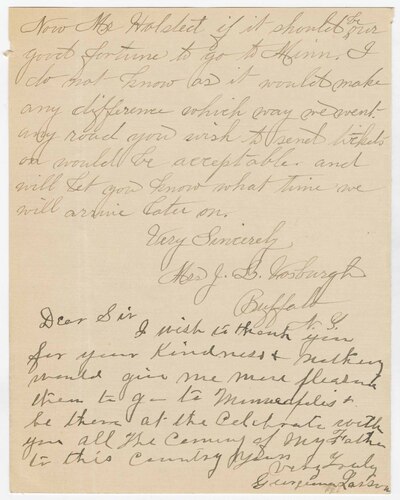 Now Mr Holstect if it should be our
good fortune to go to Minn. I
do not know as it would make
any difference which way we went.
any road you wish to send tickets
on would be acceptable. and
will let you know what time we
will arrive later on.
Very Sincerely
Mrs J. G. Vosburgh
Buffalo
N. Y.
Dear Sir
I wish to thank you
for your Kindness & nothing
would give me more pleasure
them to go to Minneaples &
be them at the Celebrate with
you all The Coming of My Father
to this Country
Very Truly
Larson